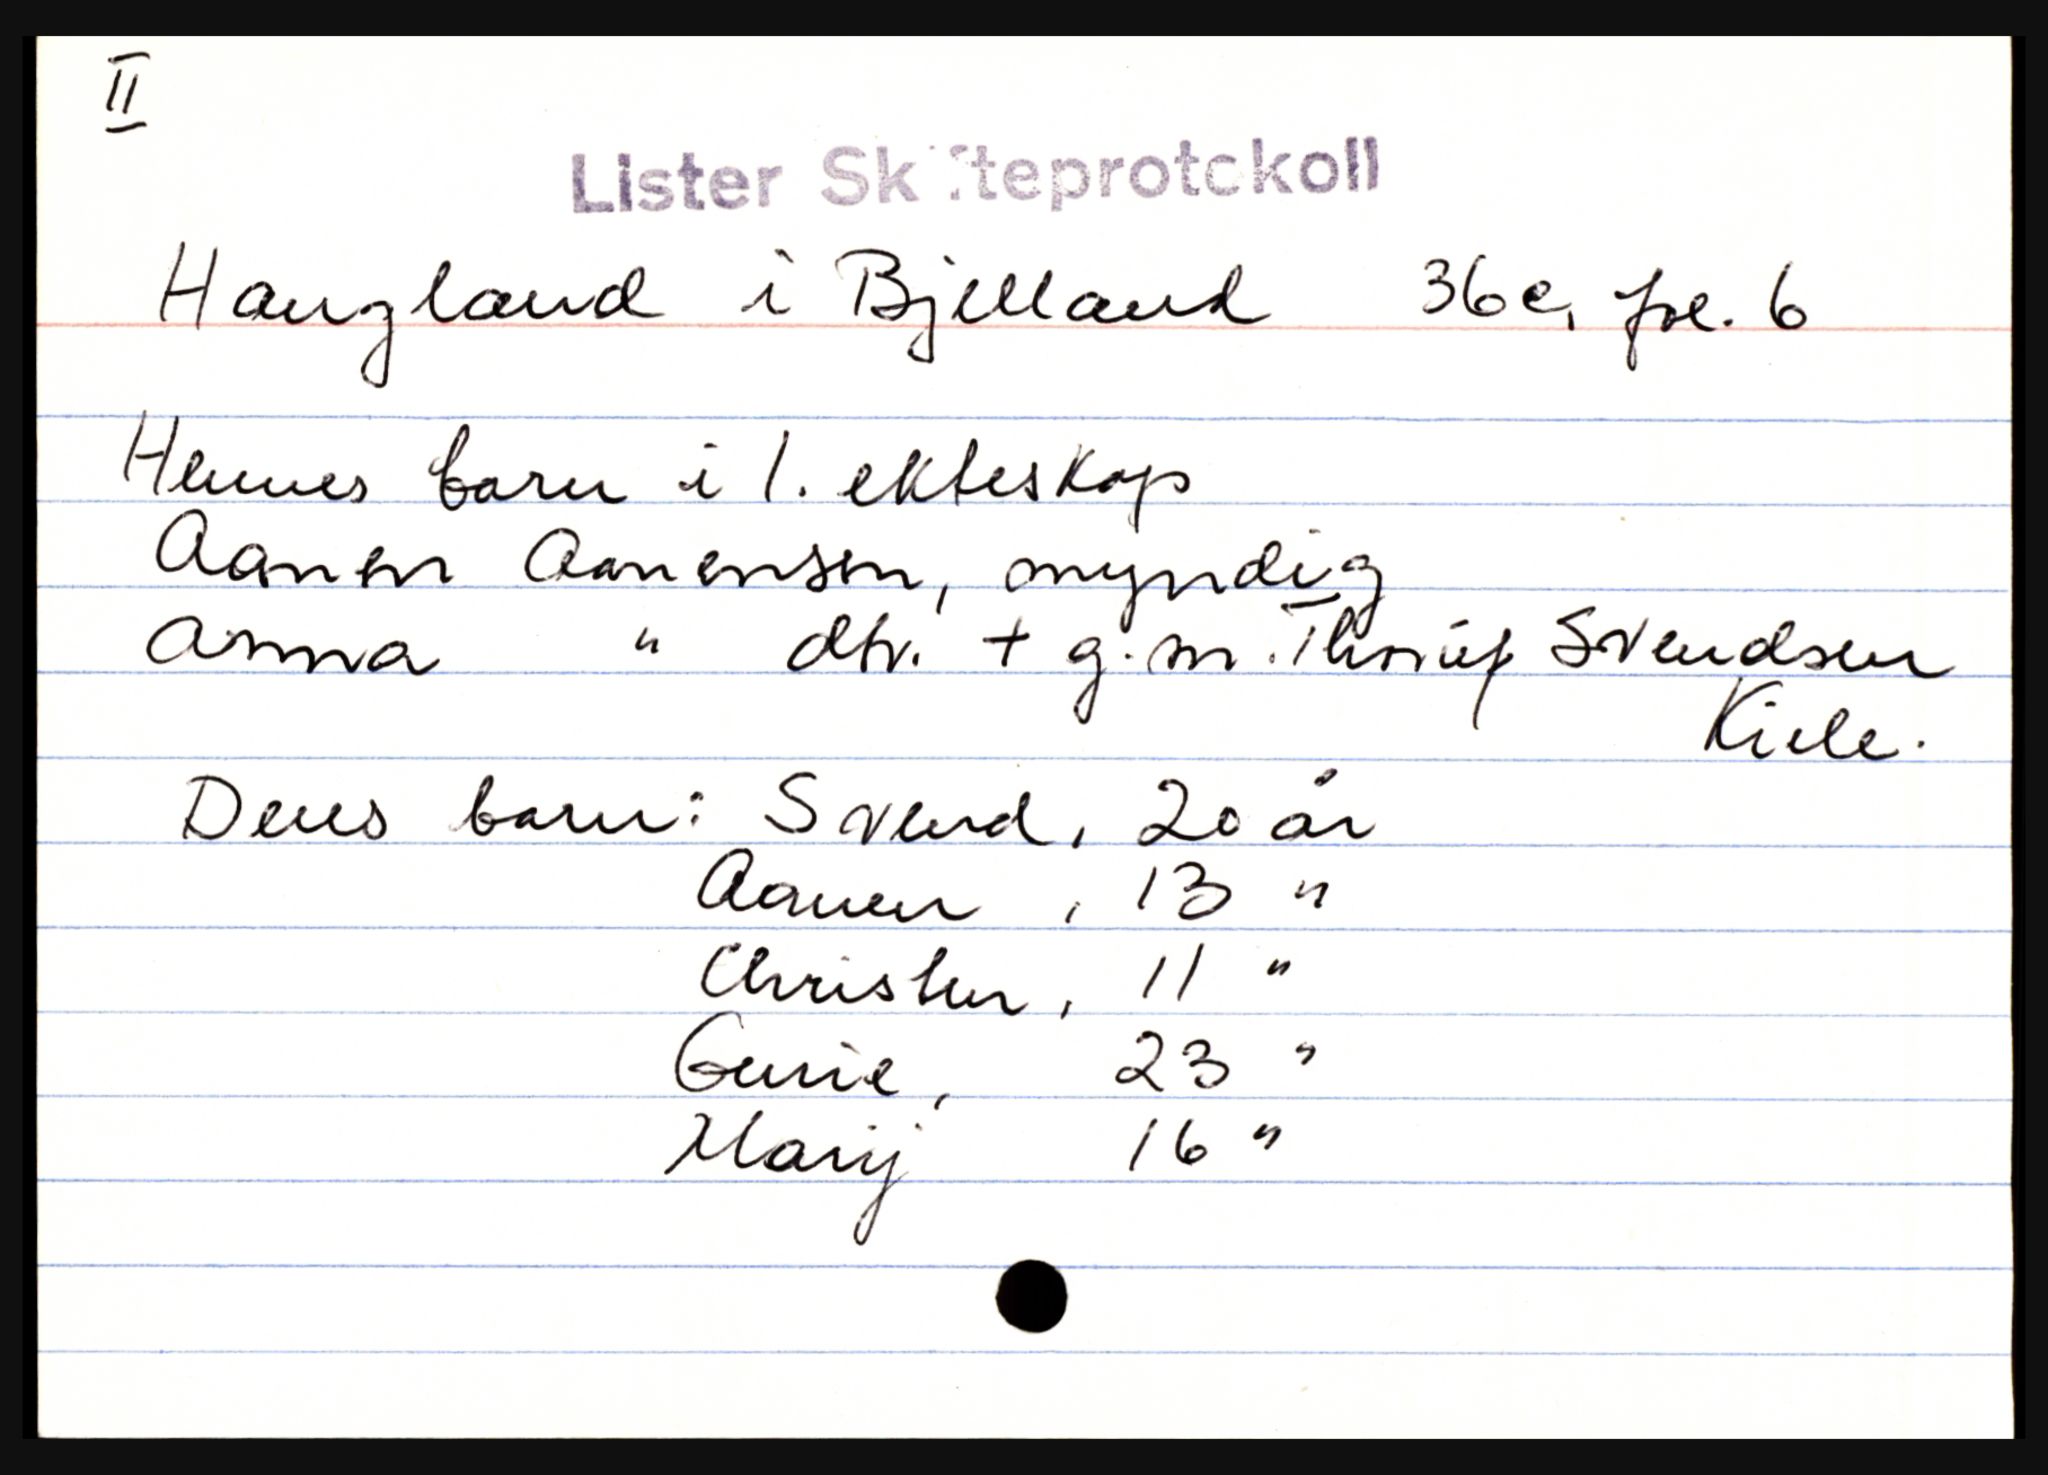 II
Lister Skifteprotokoll
Haugland i Bjelland 36c, fol. 6
Hennes barn i 1. ekteskap
Aanen Aanensen, myndig
Anna " dtr. + g.m. Svendsen
Kiele.
Deres barn: Svend, 20 år
Aanen, 13 "
Christen, 11 "
Gurie, 23 "
Marij 16 "